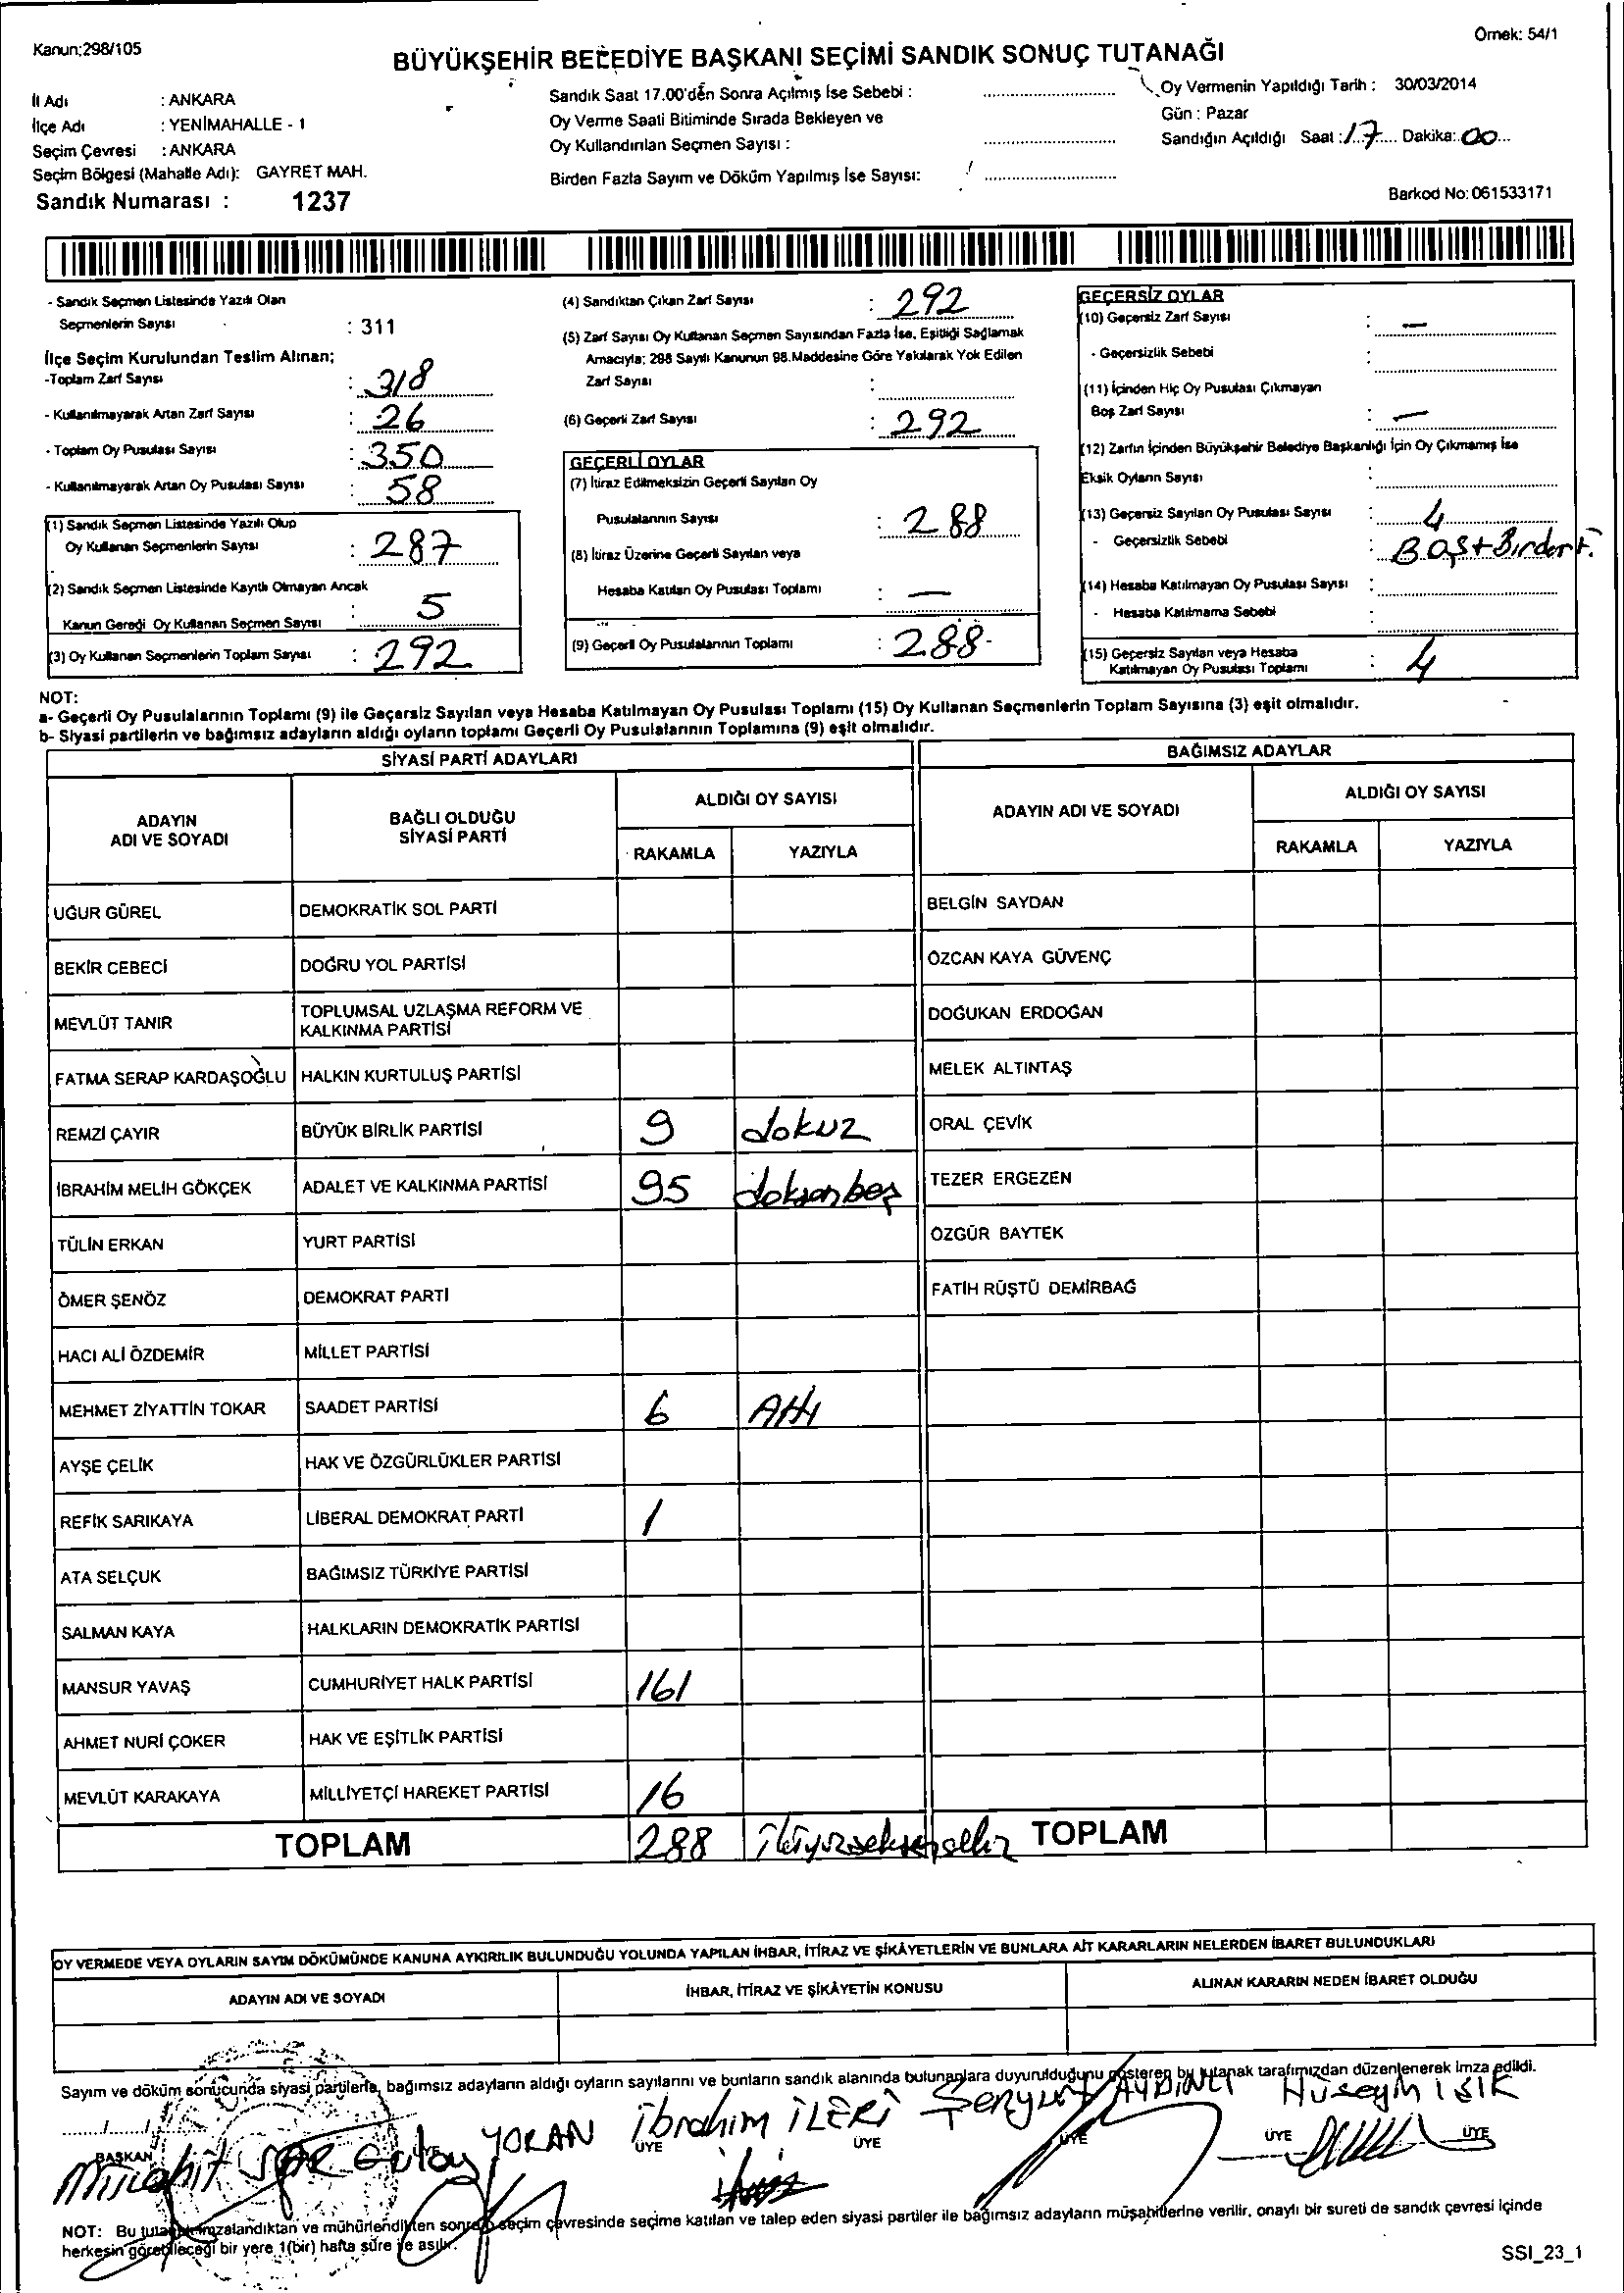 Kanun:298/105
Örnek: 54/1
BÜYÜKŞEHİR BELEDİYE BAŞKANI SEÇİMİ SANDIK SONUÇ TUTANAĞI
İl Adı : ANKARA
İlçe Adı : YENİMAHALLE - 1
Seçim Çevresi : ANKARA
Seçim Bölgesi (Mahalle Adı): GAYRET MAH.
Sandık Numarası : 1237
Sandık Saat 17.00'den Sonra Açılmış İse Sebebi :
Oy Verme Saati Bitiminde Sırada Bekleyen ve
Oy Kullandırılan Seçmen Sayısı :
Birden Fazla Sayım ve Döküm Yapılmış İse Sayısı:
Oy Vermenin Yapıldığı Tarih : 30/03/2014
Gün : Pazar
Sandığın Açıldığı Saat : 17 Dakika: 00
Barkod No: 061533171
- Sandık Seçmen Listesinde Yazılı Olan
Seçmenlerin Sayısı : 311
İlçe Seçim Kurulundan Teslim Alınan;
-Toplam Zarf Sayısı : 318
- Kullanılmayarak Artan Zarf Sayısı : 26
- Toplam Oy Pusulası Sayısı : 350
- Kullanılmayarak Artan Oy Pusulası Sayısı : 58
(1) Sandık Seçmen Listesinde Yazılı Olup
Oy Kullanan Seçmenlerin Sayısı : 287
(2) Sandık Seçmen Listesinde Kayıtlı Olmayan Ancak
Kanun Gereği Oy Kullanan Seçmen Sayısı : 5
(3) Oy Kullanan Seçmenlerin Toplam Sayısı : 292
(4) Sandıktan Çıkan Zarf Sayısı : 292
(5) Zarf Sayısı Oy Kullanan Seçmen Sayısından Fazla İse, Eşitliği Sağlamak
Amacıyla; 298 Sayılı Kanunun 98.Maddesine Göre Yakılarak Yok Edilen
Zarf Sayısı :
(6) Geçerli Zarf Sayısı : 292
GEÇERLİ OYLAR
(7) İtiraz Edilmeksizin Geçerli Sayılan Oy
Pusulalarının Sayısı : 288
(8) İtiraz Üzerine Geçerli Sayılan veya
Hesaba Katılan Oy Pusulası Toplamı : —
(9) Geçerli Oy Pusulalarının Toplamı : 288
GEÇERSİZ OYLAR
(10) Geçersiz Zarf Sayısı : —
- Geçersizlik Sebebi :
(11) İçinden Hiç Oy Pusulası Çıkmayan
Boş Zarf Sayısı : —
(12) Zarfın İçinden Büyükşehir Belediye Başkanlığı İçin Oy Çıkmamış İse
Eksik Oyların Sayısı :
(13) Geçersiz Sayılan Oy Pusulası Sayısı : 4
- Geçersizlik Sebebi : Boş+Birden F.
(14) Hesaba Katılmayan Oy Pusulası Sayısı :
- Hesaba Katılmama Sebebi :
(15) Geçersiz Sayılan veya Hesaba
Katılmayan Oy Pusulası Toplamı : 4
NOT:
a- Geçerli Oy Pusulalarının Toplamı (9) ile Geçersiz Sayılan veya Hesaba Katılmayan Oy Pusulası Toplamı (15) Oy Kullanan Seçmenlerin Toplam Sayısına (3) eşit olmalıdır.
b- Siyasi partilerin ve bağımsız adayların aldığı oyların toplamı Geçerli Oy Pusulalarının Toplamına (9) eşit olmalıdır.
SİYASİ PARTİ ADAYLARI
ADAYIN ADI VE SOYADI
BAĞLI OLDUĞU SİYASİ PARTİ
ALDIĞI OY SAYISI
RAKAMLA YAZIYLA
UĞUR GÜREL DEMOKRATİK SOL PARTİ
BEKİR CEBECİ DOĞRU YOL PARTİSİ
MEVLÜT TANIR TOPLUMSAL UZLAŞMA REFORM VE KALKINMA PARTİSİ
FATMA SERAP KARDAŞOĞLU HALKIN KURTULUŞ PARTİSİ
REMZİ ÇAYIR BÜYÜK BİRLİK PARTİSİ 9 dokuz
İBRAHİM MELİH GÖKÇEK ADALET VE KALKINMA PARTİSİ 95 doksanbeş
TÜLİN ERKAN YURT PARTİSİ
ÖMER ŞENÖZ DEMOKRAT PARTİ
HACI ALİ ÖZDEMİR MİLLET PARTİSİ
MEHMET ZİYATTİN TOKAR SAADET PARTİSİ 6 Altı
AYŞE ÇELİK HAK VE ÖZGÜRLÜKLER PARTİSİ
REFİK SARIKAYA LİBERAL DEMOKRAT PARTİ 1
ATA SELÇUK BAĞIMSIZ TÜRKİYE PARTİSİ
SALMAN KAYA HALKLARIN DEMOKRATİK PARTİSİ
MANSUR YAVAŞ CUMHURİYET HALK PARTİSİ 161
AHMET NURİ ÇOKER HAK VE EŞİTLİK PARTİSİ
MEVLÜT KARAKAYA MİLLİYETÇİ HAREKET PARTİSİ 16
TOPLAM 288 ikiyüzseksensekiz
BAĞIMSIZ ADAYLAR
ADAYIN ADI VE SOYADI
ALDIĞI OY SAYISI
RAKAMLA YAZIYLA
BELGİN SAYDAN
ÖZCAN KAYA GÜVENÇ
DOĞUKAN ERDOĞAN
MELEK ALTINTAŞ
ORAL ÇEVİK
TEZER ERGEZEN
ÖZGÜR BAYTEK
FATİH RÜŞTÜ DEMİRBAĞ
TOPLAM
OY VERMEDE VEYA OYLARIN SAYIM DÖKÜMÜNDE KANUNA AYKIRILIK BULUNDUĞU YOLUNDA YAPILAN İHBAR, İTİRAZ VE ŞİKÂYETLERİN VE BUNLARA AİT KARARLARIN NELERDEN İBARET BULUNDUKLARI
ADAYIN ADI VE SOYADI
İHBAR, İTİRAZ VE ŞİKÂYETİN KONUSU
ALINAN KARARIN NEDEN İBARET OLDUĞU
Sayım ve döküm sonucunda siyasi partilerle, bağımsız adayların aldığı oyların sayılarını ve bunların sandık alanında bulunanlara duyurulduğunu gösteren bu tutanak tarafımızdan düzenlenerek imza edildi.
...../...../.....
Gülay YORAN İbrahim İLERİ Şenyurt AYDINLI Hüseyin IŞIK
BAŞKAN ÜYE ÜYE ÜYE ÜYE ÜYE
NOT: Bu tutanak imzalandıktan ve mühürlendikten sonra seçim çevresinde seçime katılan ve talep eden siyasi partiler ile bağımsız adayların müşahitlerine verilir, onaylı bir sureti de sandık çevresi içinde
herkesin görebileceği bir yere 1(bir) hafta süre ile asılır.
SSI_23_1